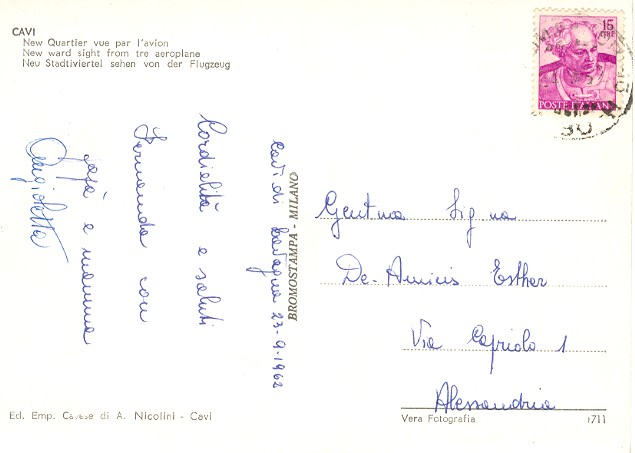 CAVI
New Quartier vue par l'avion
New ward sight from tre aeroplane
Neu Stadtiviertel sehen von der Flugzeug
15
LIRE
POSTE ITALIANE
Cavi di Lavagna 23-9-1962
Cordialità e saluti
Fernanda con
papà e mamma
Angioletta
BROMOSTAMPA - MILANO
Gent.ma Sig.na
De-Amicis Esther
Via Capriolo 1
Alessandria
Ed. Emp. Cavese di A. Nicolini - Cavi
Vera Fotografia
1711